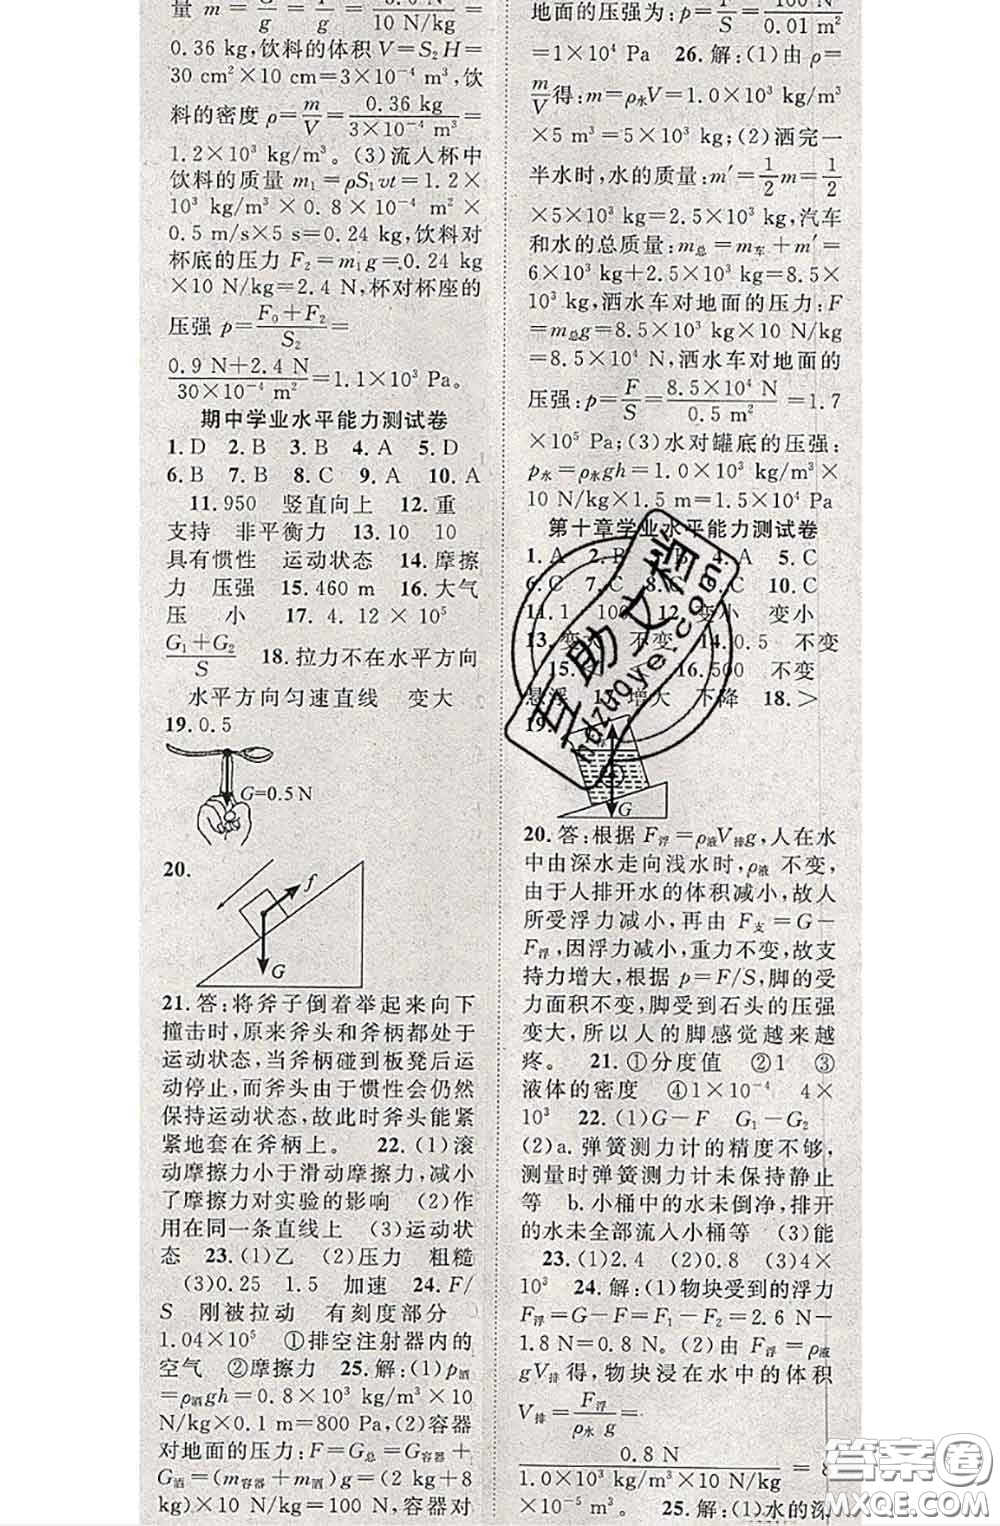 量 m=G/g=F/g=3.6 N/10 N/kg=
0.36 kg,饮料的体积 V=S₂H=
30 cm²×10 cm=3×10⁻⁴ m³,饮
料的密度 ρ=m/V=0.36 kg/3×10⁻⁴ m³=
1.2×10³ kg/m³。(3)流入杯中
饮料的质量 m₁=ρS₁vt=1.2×
10³ kg/m³×0.8×10⁻⁴ m²×
0.5 m/s×5 s=0.24 kg,饮料对
杯底的压力 F₂=m₁g=0.24 kg
×10 N/kg=2.4 N,杯对杯座的
压强 p=(F₀+F₂)/S₂=
(0.9 N+2.4 N)/(30×10⁻⁴ m²)=1.1×10³ Pa。
期中学业水平能力测试卷
1.D 2.B 3.B 4.A 5.D
6.B 7.B 8.C 9.A 10.A
11.950 竖直向上 12.重
支持 非平衡力 13.10 10
具有惯性 运动状态 14.摩擦
力 压强 15.460 m 16.大气
压 小 17.4.12×10⁵
(G₁+G₂)/S 18.拉力不在水平方向
水平方向匀速直线 变大
19.0.5
G=0.5 N
20.
f
G
21.答:将斧子倒着举起来向下
撞击时,原来斧头和斧柄都处于
运动状态,当斧柄碰到板凳后运
动停止,而斧头由于惯性会仍然
保持运动状态,故此时斧头能紧
紧地套在斧柄上。 22.(1)滚
动摩擦力小于滑动摩擦力,减小
了摩擦力对实验的影响 (2)作
用在同一条直线上 (3)运动状
态 23.(1)乙 (2)压力 粗糙
(3)0.25 1.5 加速 24.F/
S 刚被拉动 有刻度部分
1.04×10⁵ ①排空注射器内的
空气 ②摩擦力 25.解:(1)p酒
=ρ酒gh=0.8×10³ kg/m³×10
N/kg×0.1 m=800 Pa,(2)容器
对地面的压力:F=G总=G容器+
G酒=(m容器+m酒)g=(2 kg+8
kg)×10 N/kg=100 N,容器对
地面的压强为:p=F/S=100 N/0.01 m²
=1×10⁴ Pa 26.解:(1)由 ρ=
m/V得:m=ρ水V=1.0×10³ kg/m³
×5 m³=5×10³ kg;(2)洒完一
半水时,水的质量:m′=1/2m=1/2
×5×10³ kg=2.5×10³ kg,汽车
和水的总质量:m总=m车+m′=
6×10³ kg+2.5×10³ kg=8.5×
10³ kg,洒水车对地面的压力:F
=m总g=8.5×10³ kg×10 N/kg
=8.5×10⁴ N,洒水车对地面的
压强:p=F/S=8.5×10⁴ N/0.5 m²=1.7
×10⁵ Pa;(3)水对罐底的压强:
p水=ρ水gh=1.0×10³ kg/m³×
10 N/kg×1.5 m=1.5×10⁴ Pa
第十章学业水平能力测试卷
1.A 2.B 3.B 4.A 5.C
6.C 7.C 8. 9. 10.C
11.1 100 12.变小 变小
13.变大 不变 14.0.5 不变
15. 16.500 不变
悬浮 17.增大 不降 18.>
19.
G
20.答:根据 F浮=ρ液V排g,人在水
中由深水走向浅水时,ρ液 不变,
由于人排开水的体积减小,故人
所受浮力减小,再由 F支=G−
F浮,因浮力减小,重力不变,故支
持力增大,根据 p=F/S,脚的受
力面积不变,脚受到石头的压强
变大,所以人的脚感觉越来越
疼。 21.①分度值 ②1 ③
液体的密度 ④1×10⁻⁴ 4×
10³ 22.(1)G−F G₁−G₂
(2)a.弹簧测力计的精度不够,
测量时弹簧测力计未保持静止
等 b.小桶中的水未倒净,排开
的水未全部流入小桶等 (3)能
23.(1)2.4 (2)0.8 (3)4×
10³ 24.解:(1)物块受到的浮力
F浮=G−F=F₁−F₂=2.6 N−
1.8 N=0.8 N。(2)由 F浮=ρ液
gV排得,物块浸在水中的体积
V排=F浮/ρ水g=
0.8 N/(1.0×10³ kg/m³×10 N/kg)=8
×10⁻⁵ m³。 25.解:(1)水的深
互助文档
hdzuoye.com
答案圈
MXQE.COM